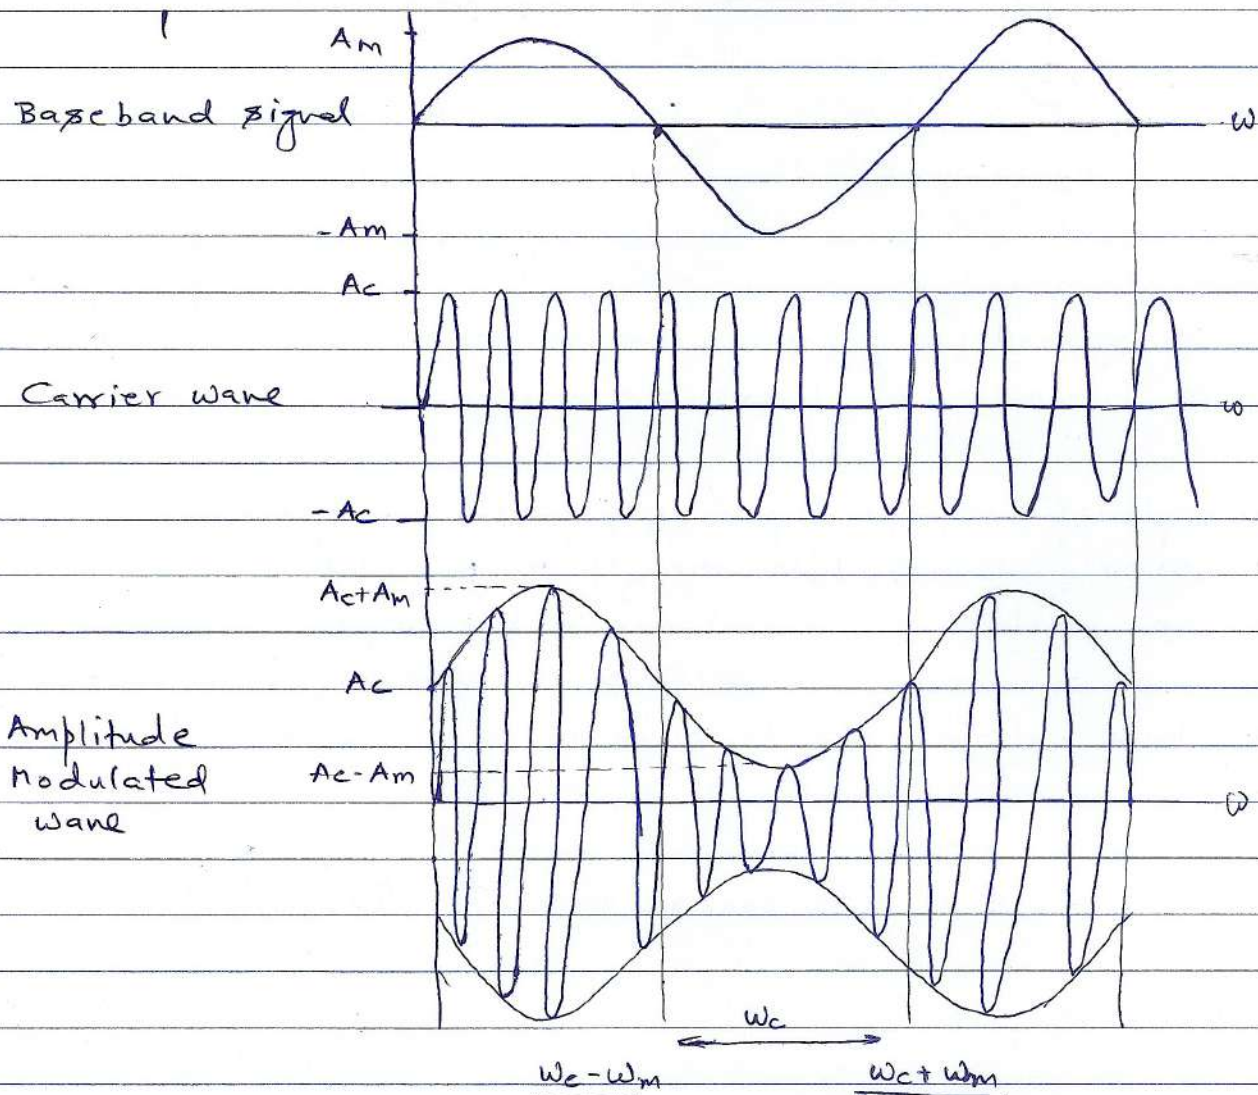 Am
Baseband signal
ω
-Am
Ac
Carrier wave
ω
-Ac
Ac+Am
Ac
Amplitude
Modulated
wave
Ac-Am
ω
ωc
ωc-ωm
ωc+ωm